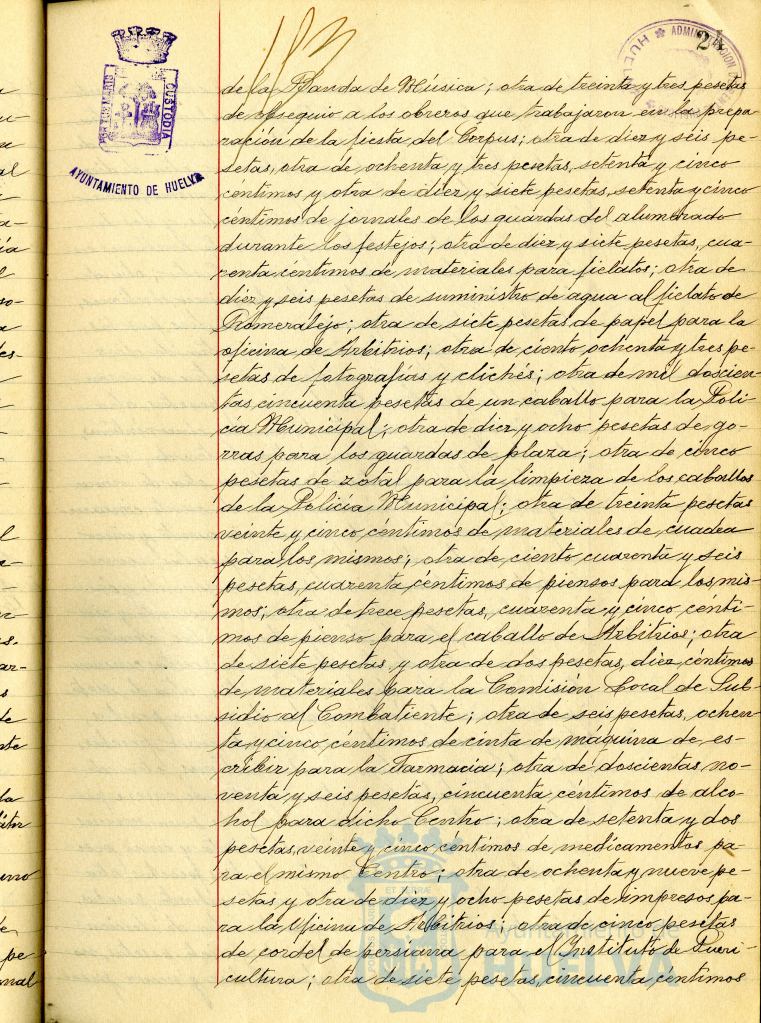 24
PORTUS MARIS
CUSTODIA
AYUNTAMIENTO DE HUELVA
ADMINISTRACION
de la Banda de Música; otra de treinta y tres pesetas
de obsequio a los obreros que trabajaron en la prepa
ración de la fiesta del Corpus; otra de diez y seis pe-
setas, otra de ochenta y tres pesetas, setenta y cinco
centimos y otra de diez y siete pesetas, setenta y cinco
centimos de jornales de los guardas del alumbrado
durante los festejos; otra de diez y siete pesetas, cua-
renta céntimos de materiales para fielatos; otra de
diez y seis pesetas de suministro de agua al fielato de
Romeralejo; otra de siete pesetas de papel para la
oficina de Arbitrios; otra de ciento ochenta y tres pe-
setas de fotografías y clichés; otra de mil doscien-
tas cincuenta pesetas de un caballo para la Poli-
cia Municipal; otra de diez y ocho pesetas de go-
rras para los guardas de plaza; otra de cinco
pesetas de zotal para la limpieza de los caballos
de la Policía Municipal; otra de treinta pesetas
veinte y cinco céntimos de materiales de cuadra
para los mismos; otra de ciento cuarenta y seis
pesetas, cuarenta céntimos de piensos para los mis-
mos; otra de trece pesetas, cuarenta y cinco cénti-
mos de pienso para el caballo de Arbitrios; otra
de siete pesetas y otra de dos pesetas, diez céntimos
de materiales para la Comisión Local de Sub-
sidio al Combatiente; otra de seis pesetas, ochen-
ta y cinco céntimos de cinta de máquina de es-
cribir para la Farmacia; otra de doscientas no-
venta y seis pesetas, cincuenta centimos de alco-
hol para dicho Centro; otra de setenta y dos
pesetas, veinte y cinco céntimos de medicamentos pa-
ra el mismo Centro; otra de ochenta y nueve pe-
setas y otra de diez y ocho pesetas de impresos pa-
ra la Oficina de Arbitrios; otra de cinco pesetas
de cordel de persiana para el Instituto de Pueri-
cultura; otra de siete pesetas, cincuenta céntimos
Ayuntamiento de
HUELVA